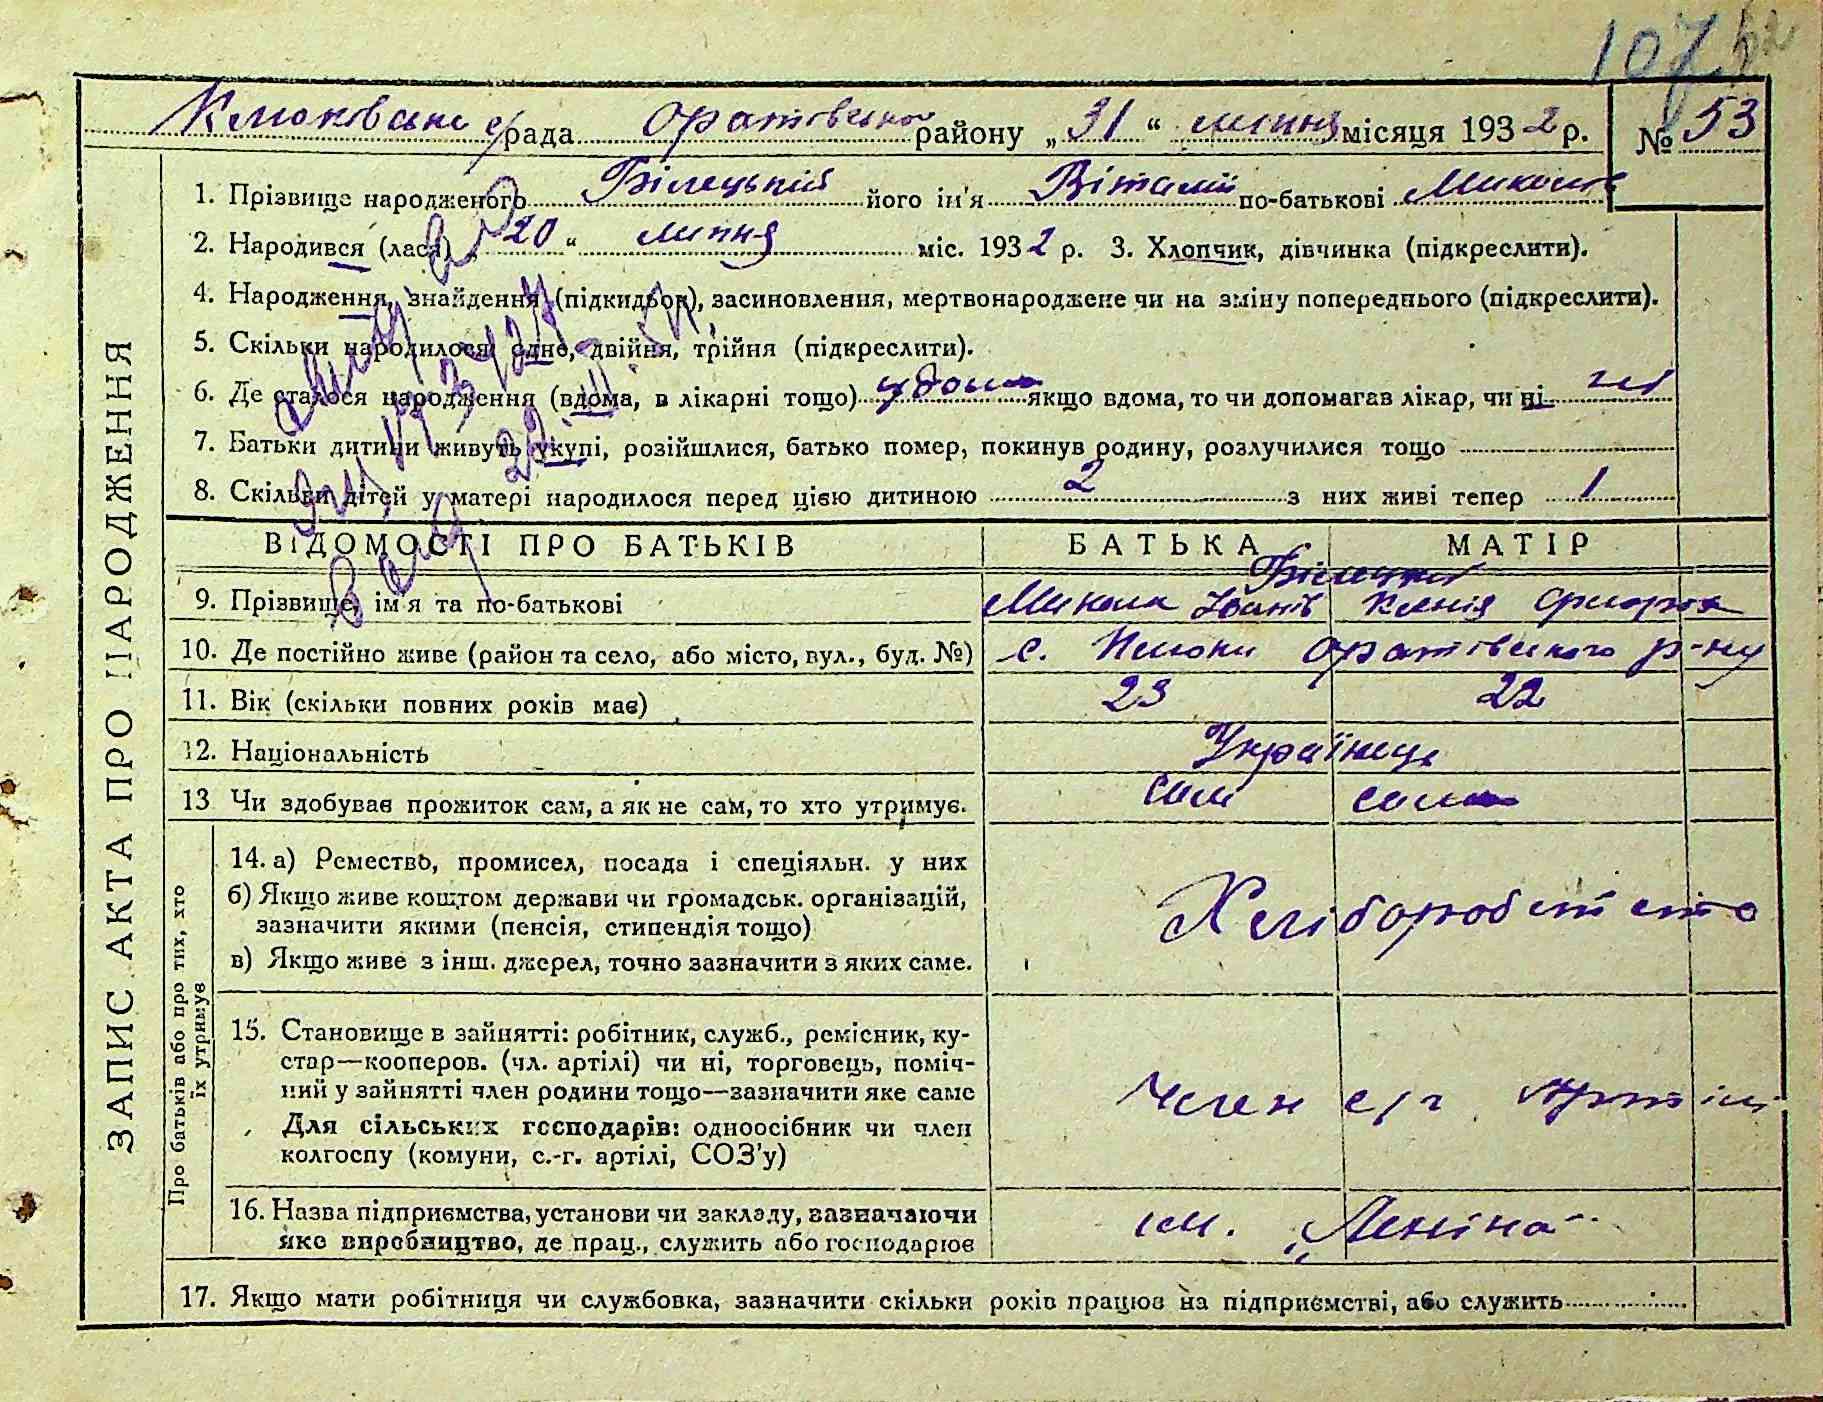 107
Клюківська с/рада Оратівського району „31“ липня місяця 1932 р. № 53
1. Прізвище народженого Білецький його ім'я Віталій по-батькові Микол
2. Народився (лася) „20“ липня міс. 1932 р. 3. Хлопчик, дівчинка (підкреслити).
4. Народження, знайдення (підкидьок), засиновлення, мертвонароджене чи на зміну попереднього (підкреслити).
5. Скільки народилося: одне, двійня, трійня (підкреслити).
6. Де сталося народження (вдома, в лікарні тощо) удома якщо вдома, то чи допомагав лікар, чи ні ні
7. Батьки дитини живуть укупі, розійшлися, батько помер, покинув родину, розлучилися тощо
8. Скільки дітей у матері народилося перед цією дитиною 2 з них живі тепер 1
ЗАПИС АКТА ПРО НАРОДЖЕННЯ
ВІДОМОСТІ ПРО БАТЬКІВ БАТЬКА МАТІР
Білецькі
9. Прізвище, ім'я та по-батькові Микола Іванів Ксенія
10. Де постійно живе (район та село, або місто, вул., буд. №) с. Клюки Оратівського р-ну
11. Вік (скільки повних років має) 23 22
12. Національність Українець
13 Чи здобуває прожиток сам, а як не сам, то хто утримує. сам сама
Про батьків або про тих, хто
їх утримує
14. а) Ремество, промисел, посада і спеціяльн. у них
б) Якщо живе коштом держави чи громадськ. організацій,
зазначити якими (пенсія, стипендія тощо)
в) Якщо живе з інш. джерел, точно зазначити з яких саме.
Хліборобство
15. Становище в зайнятті: робітник, служб., ремісник, ку-
стар—кооперов. (чл. артілі) чи ні, торговець, поміч-
ний у зайнятті член родини тощо—зазначити яке саме
Для сільських господарів: одноосібник чи член
колгоспу (комуни, с.-г. артілі, СОЗ'у)
Член с/г артілі
16. Назва підприємства, установи чи закладу, зазначаючи
яке виробництво, де прац., служить або господарює
ім. „Леніна“
17. Якщо мати робітниця чи службовка, зазначити скільки років працює на підприємстві, або служить